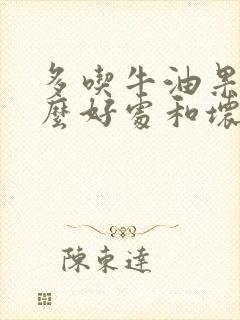 多喫牛油果
麼好處和壞
陳東達